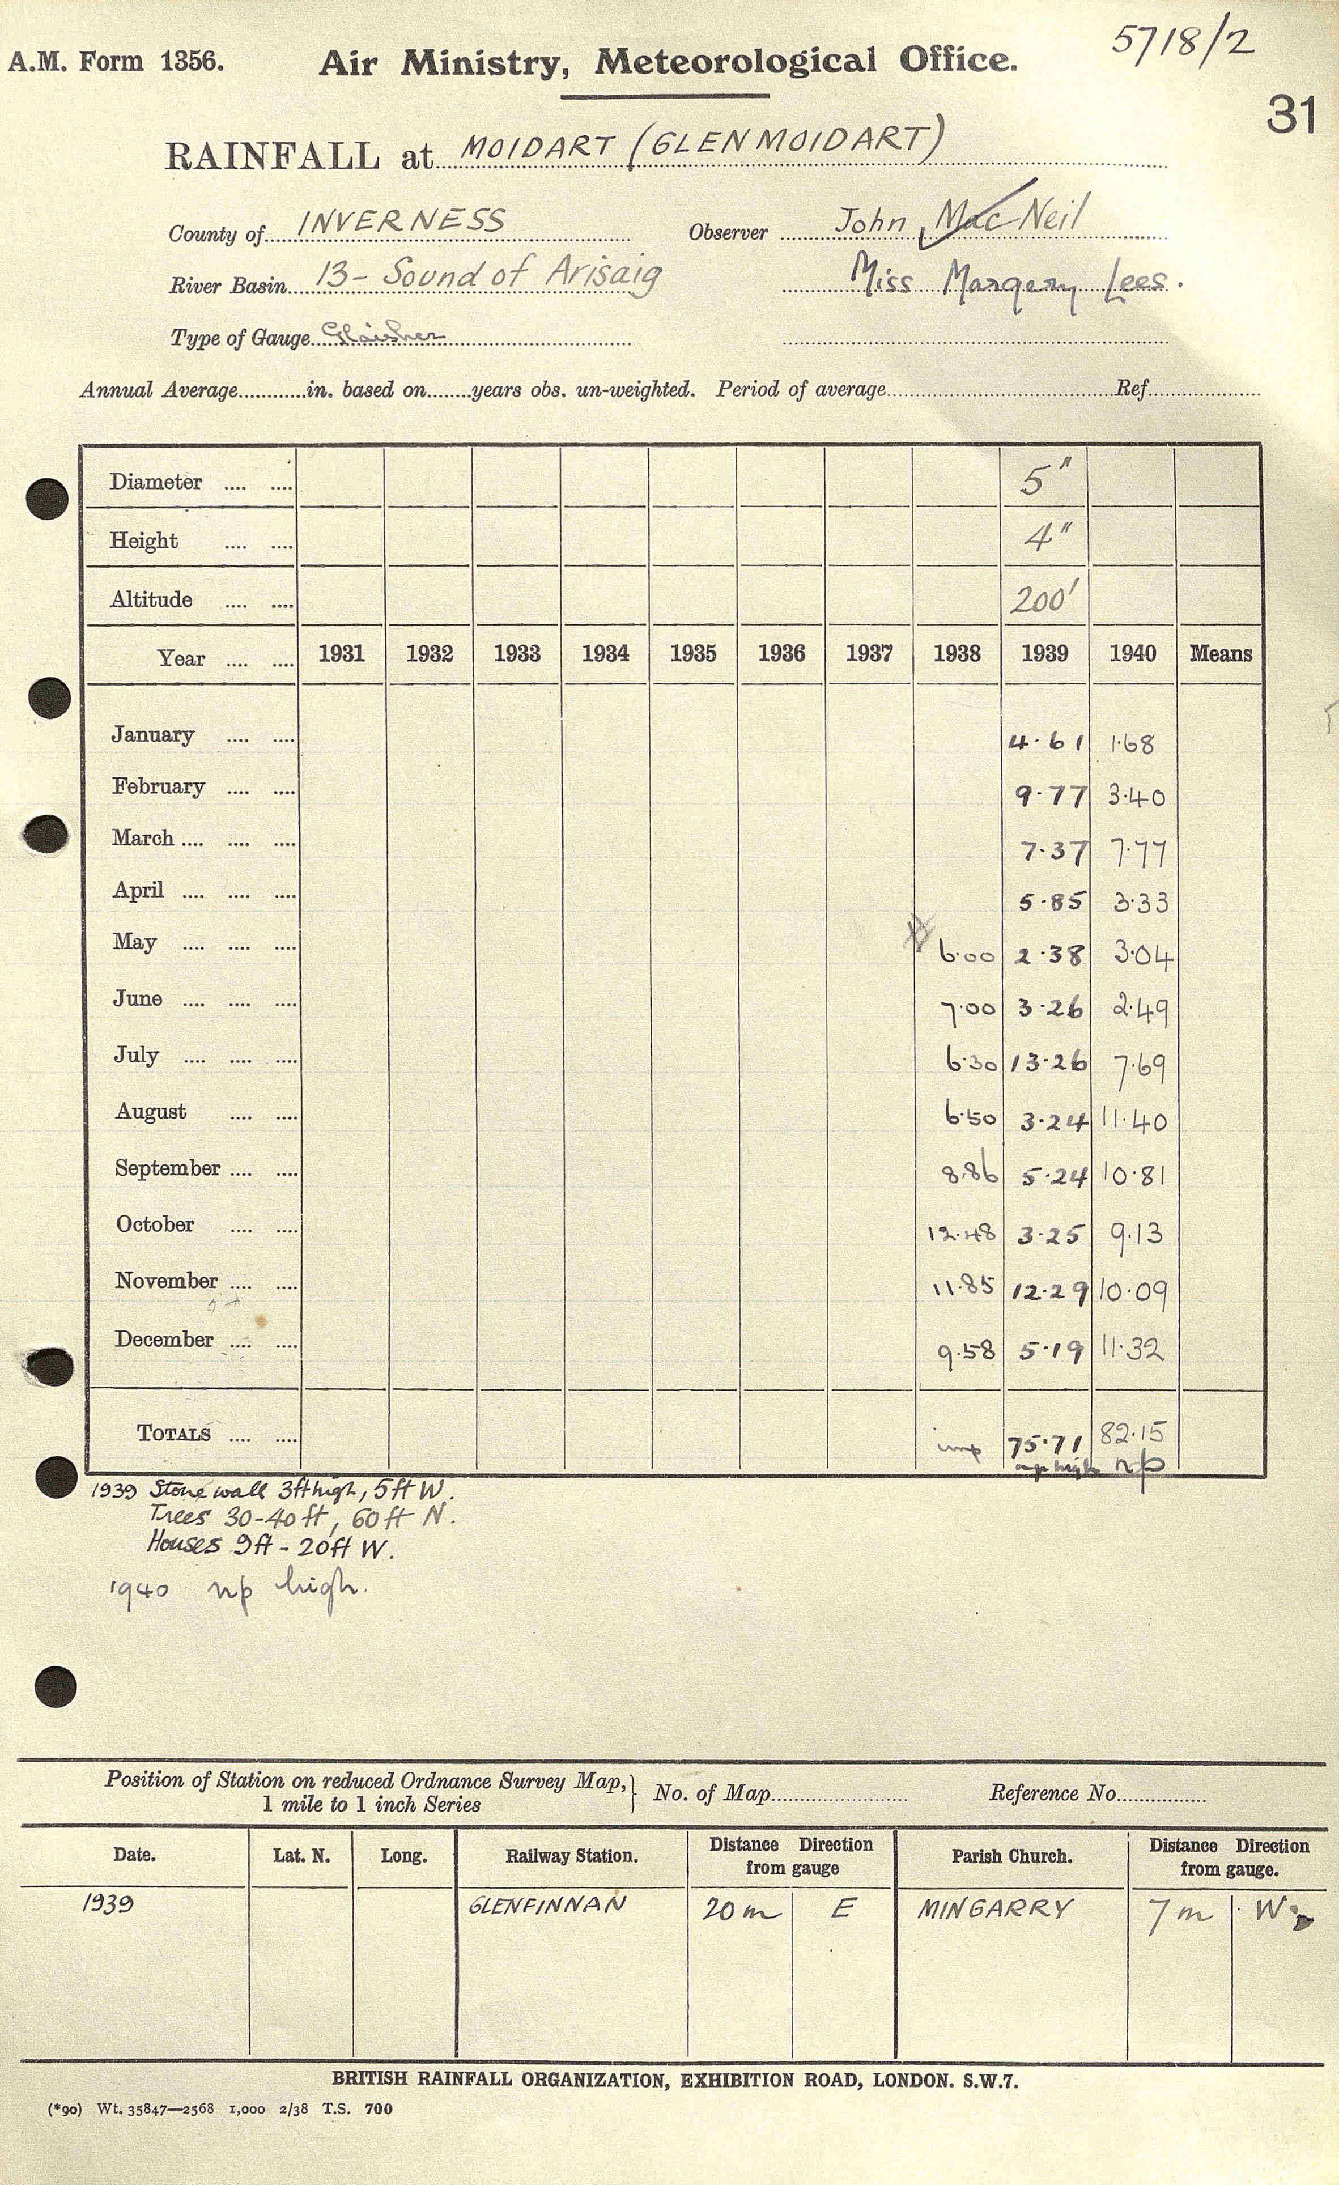 5718/2
A.M. Form 1356. Air Ministry, Meteorological Office.
31
RAINFALL at MOIDART (GLENMOIDART)
County of INVERNESS Observer John MacNeil
River Basin 13 - Sound of Arisaig Miss Margery Lees.
Type of Gauge Glaisher
Annual Average............in. based on........years obs. un-weighted. Period of average.......... Ref..........
Diameter .... .... 5"
Height .... .... 4"
Altitude .... .... 200'
Year .... .... 1931 1932 1933 1934 1935 1936 1937 1938 1939 1940 Means
January .... .... 4.61 1.68
February .... .... 9.77 3.40
March .... .... .... 7.37 7.77
April .... .... .... 5.85 3.33
May .... .... .... 6.00 2.38 3.04
June .... .... .... 7.00 3.26 2.49
July .... .... .... 6.30 13.26 7.69
August .... .... 6.50 3.24 11.40
September .... .... 8.86 5.24 10.81
October .... .... 12.48 3.25 9.13
November .... .... 11.85 12.29 10.09
December .... .... 9.58 5.19 11.32
TOTALS .... .... imp 75.71 82.15
high np
1939 Stone wall 3ft high, 5ft W.
Trees 30-40ft, 60ft N.
Houses 9ft - 20ft W.
1940 np high.
Position of Station on reduced Ordnance Survey Map, 1 mile to 1 inch Series } No. of Map.......... Reference No..........
Date. Lat. N. Long. Railway Station. Distance Direction from gauge Parish Church. Distance Direction from gauge.
1939 GLENFINNAN 20 m E MINGARRY 7 m W
BRITISH RAINFALL ORGANIZATION, EXHIBITION ROAD, LONDON. S.W.7.
(*90) Wt. 35847—2568 1,000 2/38 T.S. 700